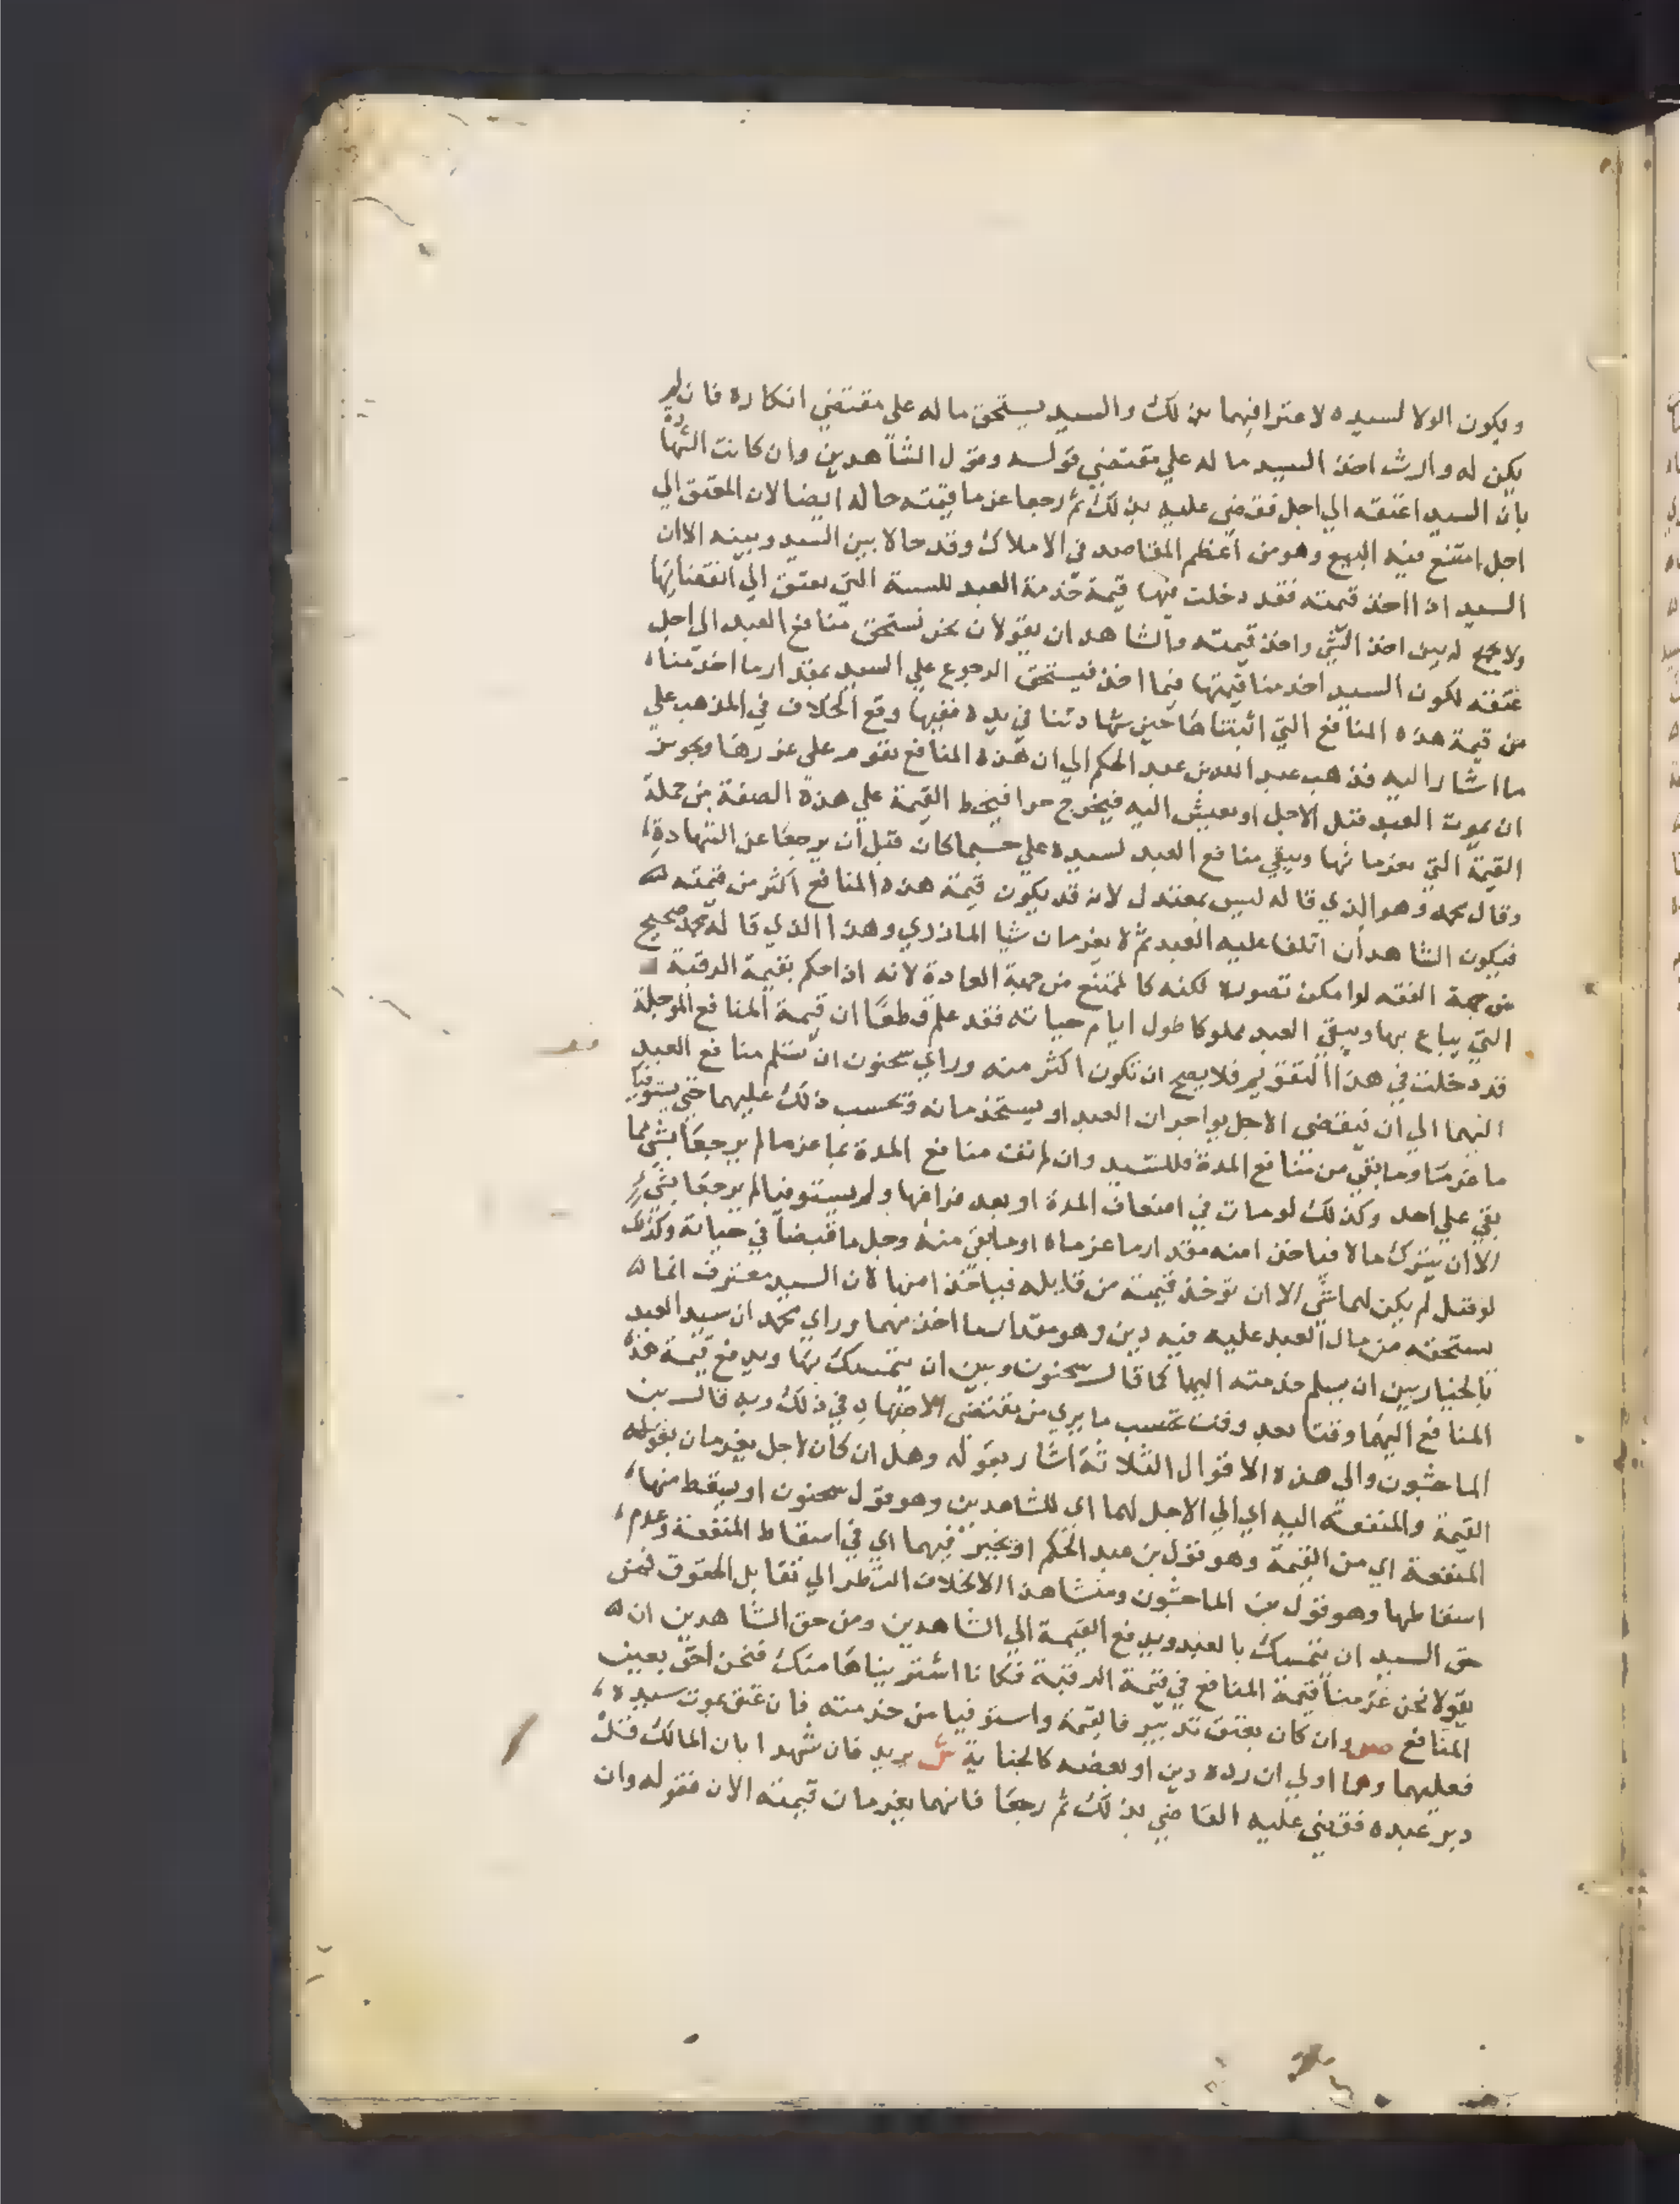 ويكون الولا لسيده لاعترافهما بذلك والسيد يستحق ماله على مقتضي انكاره فان لم
يكن له وارث اخذ السيد ماله علي مقتضي قوله وقول الشاهدين وان كانت الشهادة
بان السيد اعتقه الي اجل فقضي عليه بذلك ثم رجعا غرما قيمته حاله ايضا لان المعتق الي
اجل امتنع فيه البيع وهو من اعظم المقاصد في الاملاك وقد حالا بين السيد وبينه الا ان
السيد اذا اخذ قيمته فقد دخلت فيها قيمة خدمة العبد للسنة التي يعتق الي انقضائها
ولا يجمع له بين اخذ الشي واخذ قيمته والشاهدان يقولان نحن نستحق منافع العبد الي اجل
عتقه لكون السيد اخذ منا قيمتها فيما اخذ فيستحق الرجوع علي السيد بمقدار ما اخذ منا
من قيمة هذه المنافع التي اثبتناها حين شهادتنا في يده ففيها وقع الخلاف في المذهب علي
ما اشار اليه فذهب عبد الله بن عبد الحكم الي ان هذه المنافع تقوم على غررها وتجويز
ان يموت العبد قبل الاجل او يعيش اليه فيخرج حرا فيحط القيمة علي هذه الصفة من جملة
القيمة التي يغرمانها ويبقي منافع العبد لسيده علي حسبما كان قبل ان يرجعا عن الشهادة
وقال محمد وهو الذي قاله ليس بمعتدل لانه قد يكون قيمة هذه المنافع اكثر من قيمته
فيكون الشاهدان اتلفا عليه العبد ثم لا يغرمان شيا المازري وهذا الذي قاله محمد صحيح
من جهة الفقه لو امكن تصوره لكنه كالممتنع من جهة العادة لانه اذا حكم بقيمة الرقبة
التي يباع بها ويبقي العبد مملوكا طول ايام حياته فقد علم قطعا ان قيمة المنافع الموجلة
قد دخلت في هذا التقويم فلا يصح ان تكون اكثر منه وراي سحنون ان تسلم منافع العبد
اليهما الي ان ينقضى الاجل يواجران العبد او يستخدمانه وتحسب ذلك عليهما حتي يستوفيا
ما غرما وما بقي من منافع المدة فللسيد وان لم تف منافع المدة بما غرما لم يرجعا بشي مما
بقي علي احد وكذلك لو مات في اضعاف المدة او بعد فراغها ولم يستوفيا لم يرجعا بشيء
الا ان يترك مالا فياخذا منه مقدار ما غرماه او ما بقي منه وجل ما قبضا في حياته وكذلك
لو قتل لم يكن لهما شي الا ان توخذ قيمته من قاتله فياخذا منها لان السيد معترف انما
يستحقه من مال العبد عليه فيه دين وهو مقدار ما اخذ منهما وراي محمد ان سيد العبد
بالخيار بين ان يسلم خدمته اليهما كما قال سحنون وبين ان يتمسك بها ويدفع قيمة هذه
المنافع اليهما وقتا بعد وقت بحسب ما يري من مقتضى الاجتهاد في ذلك وبه قال بن
الماجشون والي هذه الاقوال الثلاثة اشار بقوله وهل ان كان لاجل يغرمان بقوله
القيمة والمنفعة اليه اي الي الاجل لهما اي للشاهدين وهو قول سحنون او يسقط منها
المنفعة اي من القيمة وهو قول بن عبد الحكم او يخير فيهما اي في اسقاط المنفعة وعدم
اسقاطها وهو قول بن الماجشون ومنشا هذا الاختلاف النظر الي تقابل الحقوق فمن
حق السيد ان يتمسك بالعبد ويدفع القيمة الي الشاهدين ومن حق الشاهدين ان
يقولا نحن غرمنا قيمة المنافع في قيمة الرقبة فكانا اشتريناها منك فنحن احق بعين
المنافع ص وان كان بعتق تدبير فالقيمة واستوفيا من خدمته فان عتق بموت سيده
فعليهما وهما اولي ان رده دين او بعضه كالجناية ش يريد فان شهدا بان المالك قبل
دبر عبده فقضي عليه القاضي بذلك ثم رجعا فانهما يغرمان قيمته الان فقوله وان